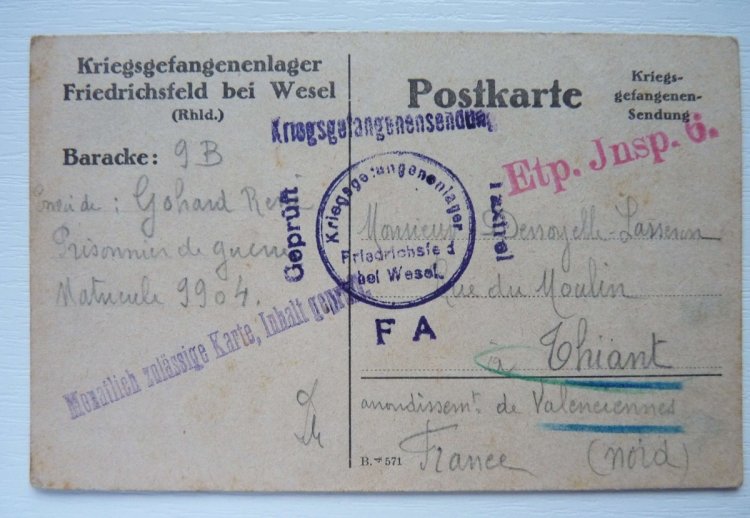 Kriegsgefangenenlager
Friedrichsfeld bei Wesel
(Rhld.)
Baracke: 9 B
Gohard René
Prisonnier de guerre
Matricule 9904.
Postkarte
Kriegs-
gefangenen-
Sendung
Kriegsgefangenensendung
Etp. Jnsp. 6.
Geprüft
Kriegsgefangenenlager
Friedrichsfe d
bei Wesel.
F A
Monatlich zulässige Karte, Inhalt geprüft.
Monsieur
Rue du Moulin
à Thiant
arrondissemt. de Valenciennes
France (Nord)
B. 571